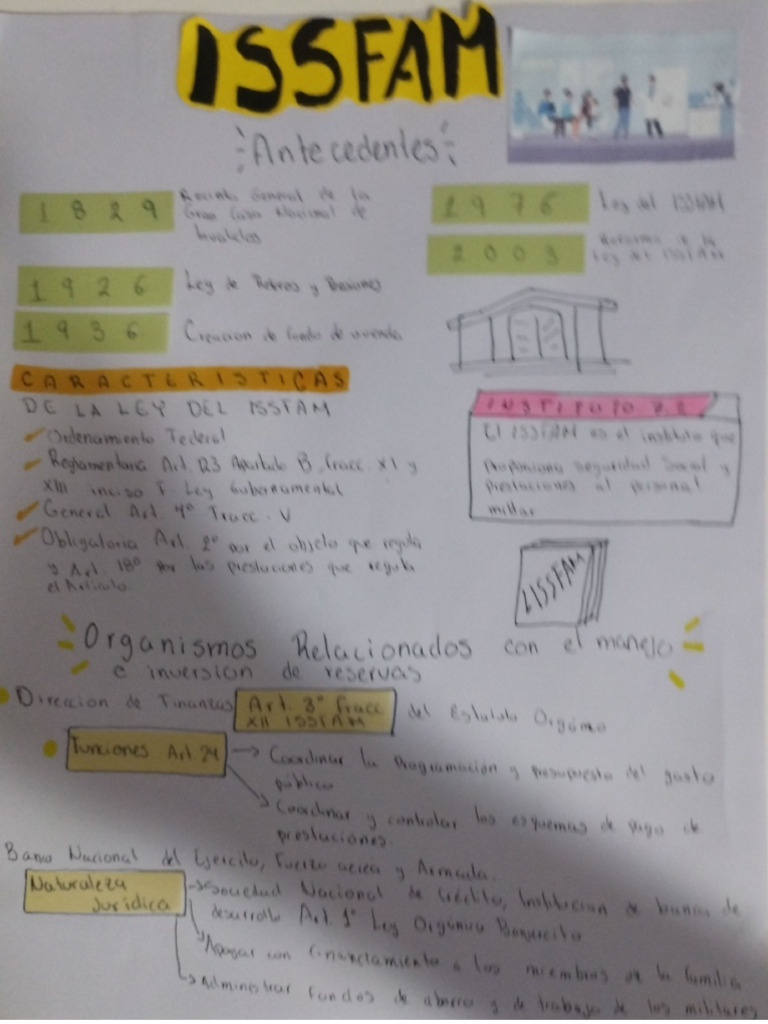 ISSFAM
Antecedentes
1829 Recinto General de la
Gran Casa Nacional de
Invalidos
1926 Ley de Retiros y Pensiones
1936 Creacion de fondo de vivienda
1976 Ley del ISSFAM
2003 Reforma a la
Ley del ISSFAM
CARACTERISTICAS
DE LA LEY DEL ISSFAM
Ordenamiento Federal
Reglamentaria Art. 123 Apartado B, fracc. XI y
XIII inciso F. Ley Gubernamental
General Art. 4º Fracc. V
Obligatoria Art. 2º por el objeto que regula
y Art. 18º por las prestaciones que regula
el Articulo.
INSTITUTO
El ISSFAM es el instituto que
proporciona seguridad Social y
prestaciones al personal
militar
LISSFAM
Organismos Relacionados con el manejo
e inversion de reservas
Direccion de Finanzas Art. 3º Fracc del Estatuto Orgánico
XII ISSFAM
Funciones Art. 24
Coordinar la Programación y presupuesto del gasto
público
Coordinar y controlar los esquemas de pago de
prestaciones.
Banco Nacional del Ejercito, Fuerza aerea y Armada.
Naturaleza
Jurídica
Sociedad Nacional de Crédito, Institucion de banca de
desarrollo Art. 1º Ley Orgánica Banjercito
Apoyar con financiamiento a los miembros de la familia
Administrar fondos de ahorro y de trabajo de los militares